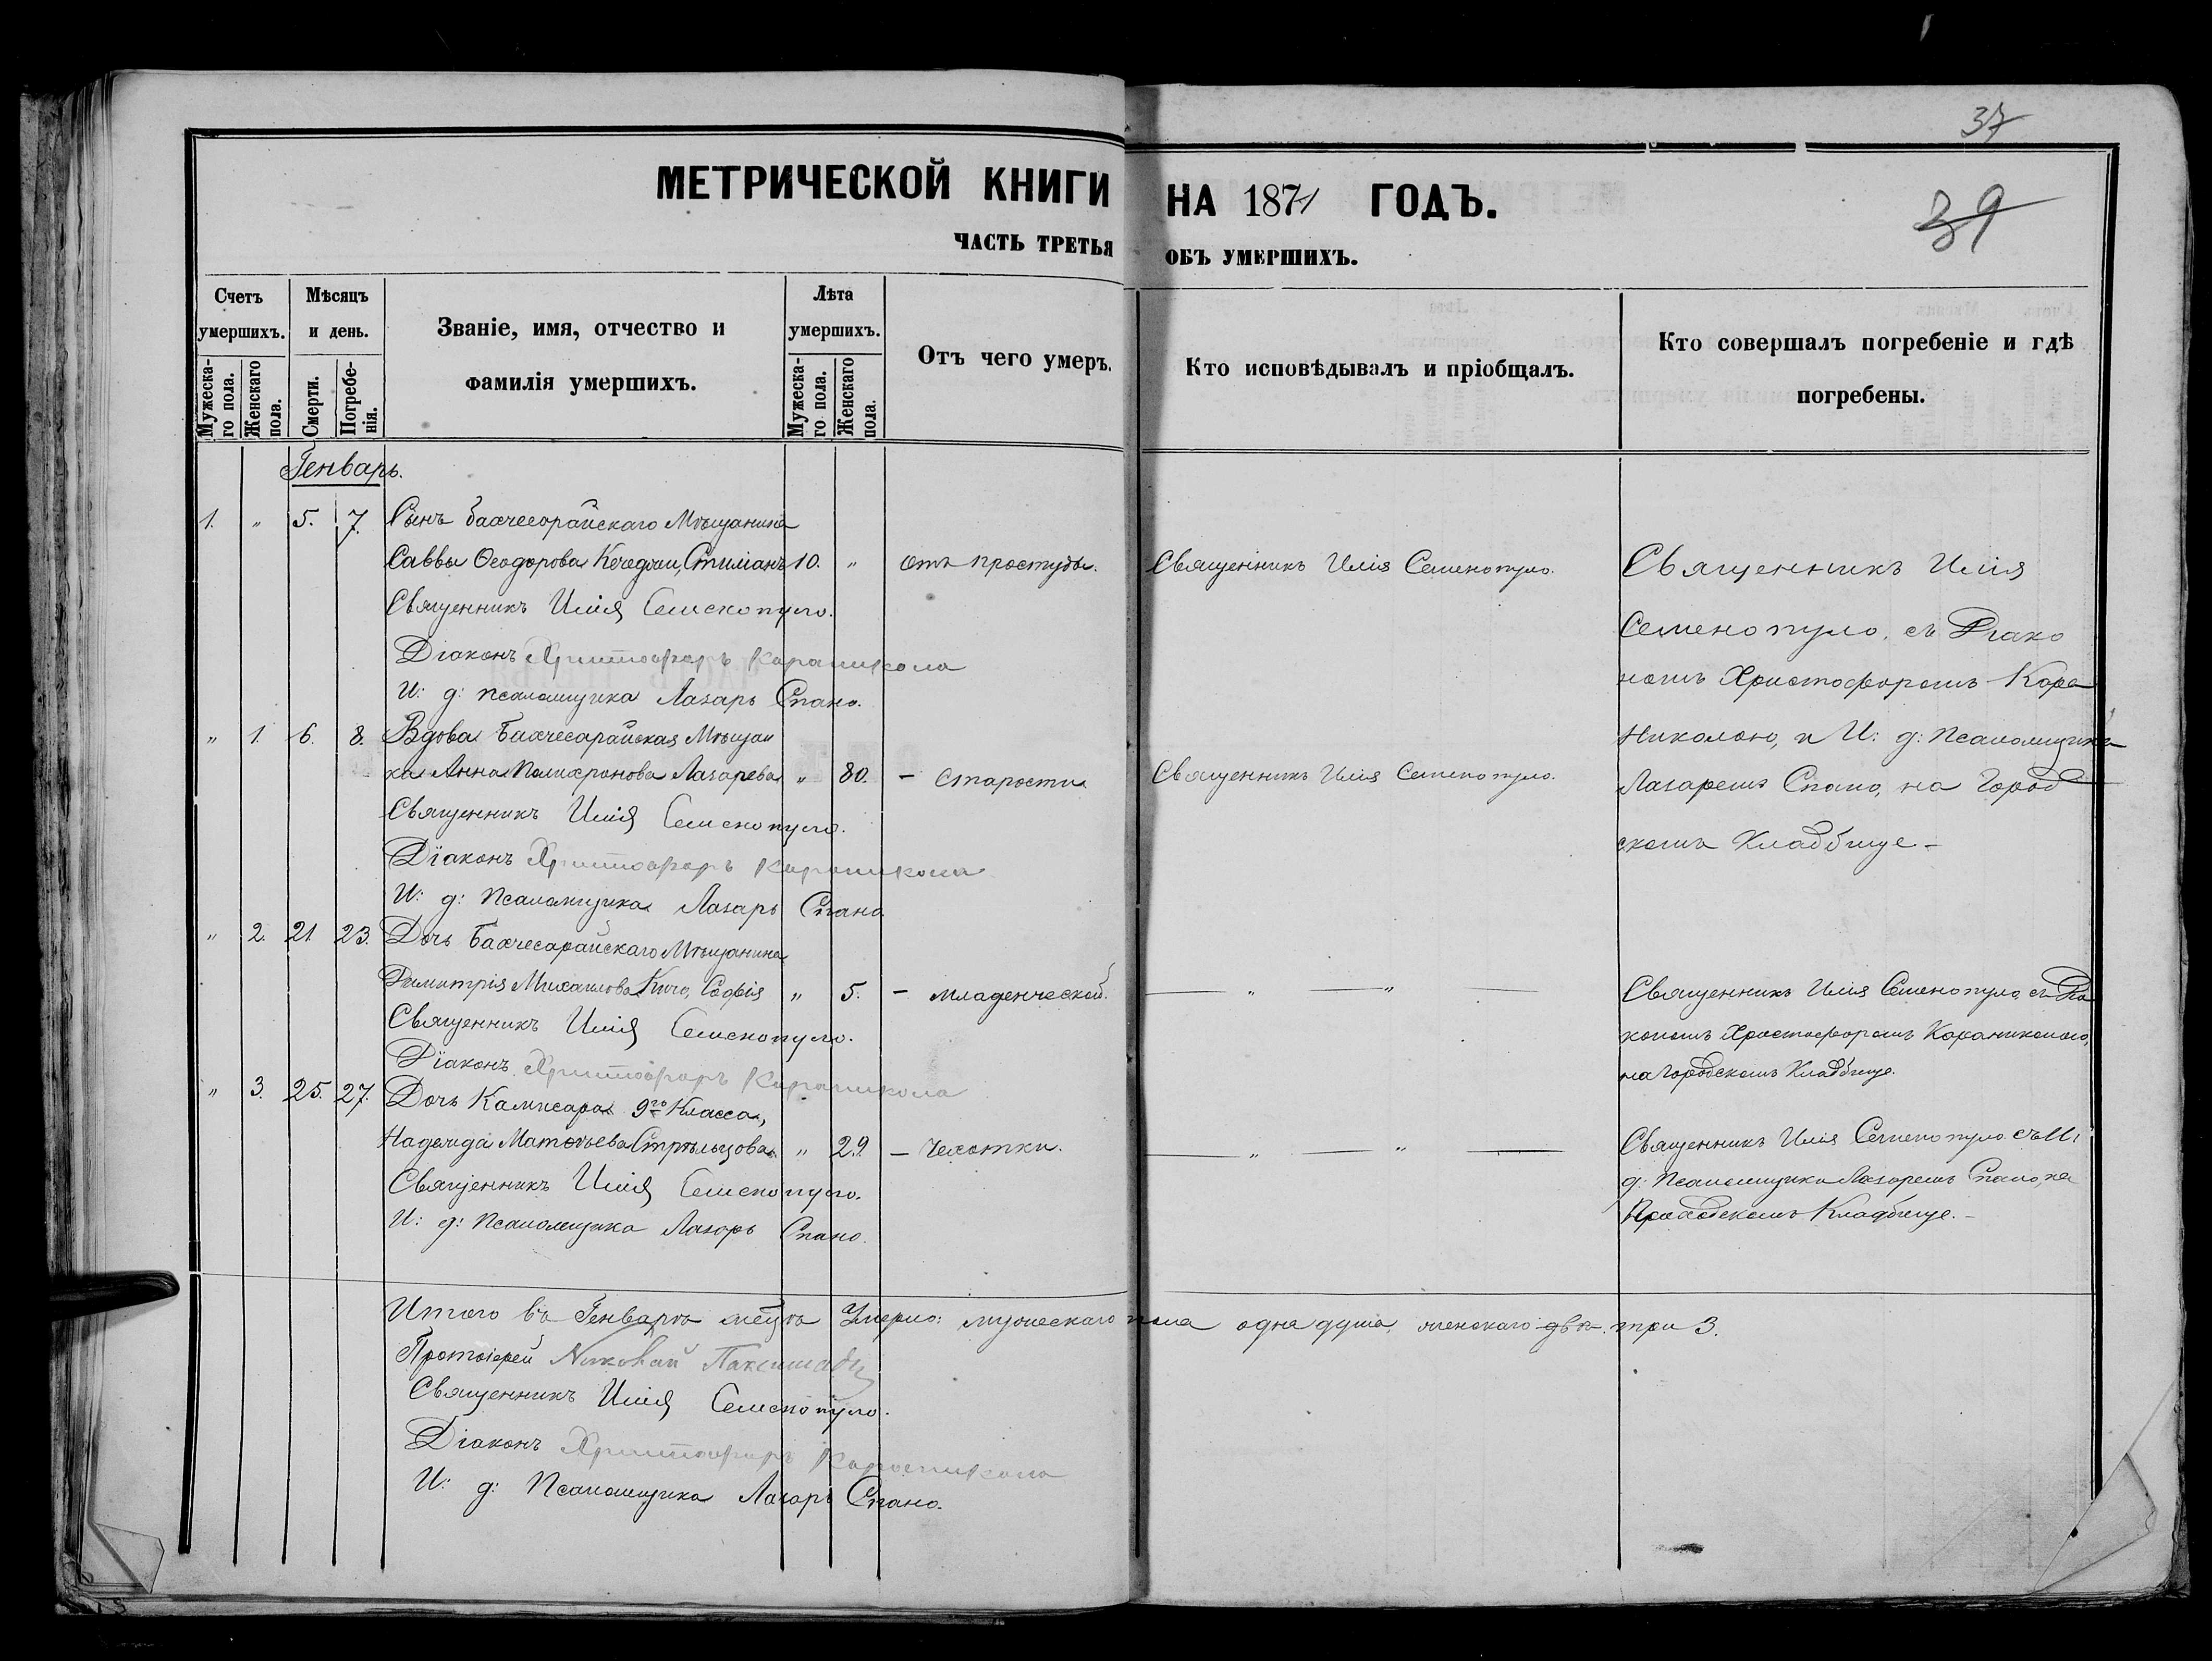 37
39
МЕТРИЧЕСКОЙ КНИГИ НА 1871 ГОДЪ.
ЧАСТЬ ТРЕТЬЯ ОБЪ УМЕРШИХЪ.
Счетъ умершихъ.
Мужеска-го пола.
Женскаго пола.
Мѣсяцъ и день.
Смерти.
Погребе-нія.
Званіе, имя, отчество и фамилія умершихъ.
Лѣта умершихъ.
Мужеска-го пола.
Женскаго пола.
Отъ чего умеръ.
Кто исповѣдывалъ и пріобщалъ.
Кто совершалъ погребеніе и гдѣ погребены.
Генварь.
1. " 5. 7. Сынъ бахчесарайскаго Мѣщанина
Саввы Ѳеодорова Стиліанъ 10. " отъ простуды. Священникъ Илія Семенопуло.
Священникъ Илія Семенопуло.
Діаконъ Христофоръ Караникола
И: д: псаломщика Лазарь Спано.
Священникъ Илія
Семенопуло, съ Діако
номъ Христофоромъ Кара
николою, и И: д: Псаломщика
Лазаремъ Спано, на Город
скомъ Кладбище –
" 1. 6. 8. Вдова Бахчесарайская Мѣщан
ка Анна Полихронова Лазарева " 80. – старости Священникъ Илія Семенопуло.
Священникъ Илія Семенопуло.
Діаконъ Христофоръ Караникола
И: д: Псаломщика Лазарь Спано
" 2. 21. 23. Дочь Бахчесарайскаго Мѣщанина
Димитрія Михаилова Софія " 5. – младенческой. — " — " —
Священникъ Илія Семенопуло.
Діаконъ Христофоръ Караникола
Священникъ Илія Семенопуло, съ Діа
кономъ Христофоромъ Караниколою,
на Городскомъ Кладбище.
" 3. 25. 27. Дочь Камисара 9го Класса,
Надежда Матѳѣева Стрѣльцова " 29. – Чахотки. — " — " —
Священникъ Илія Семенопуло.
И: д: Псаломщика Лазарь Спано.
Священникъ Илія Семенопуло съ И:
д: Псаломщика Лазаремъ Спано, на
Кладбище. –
Итого въ Генварѣ мсцѣ Умерло: мужескаго пола одна душа, женскаго двѣ три 3.
Протоіерей Николай
Священникъ Илія Семенопуло.
Діаконъ Христофоръ Караникола
И: д: Псаломщика Лазарь Спано.